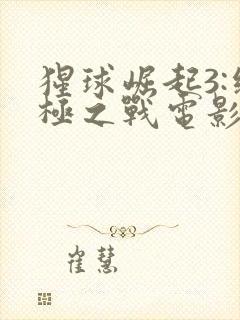 猩球崛起3:終
極之戰電影
崔慧